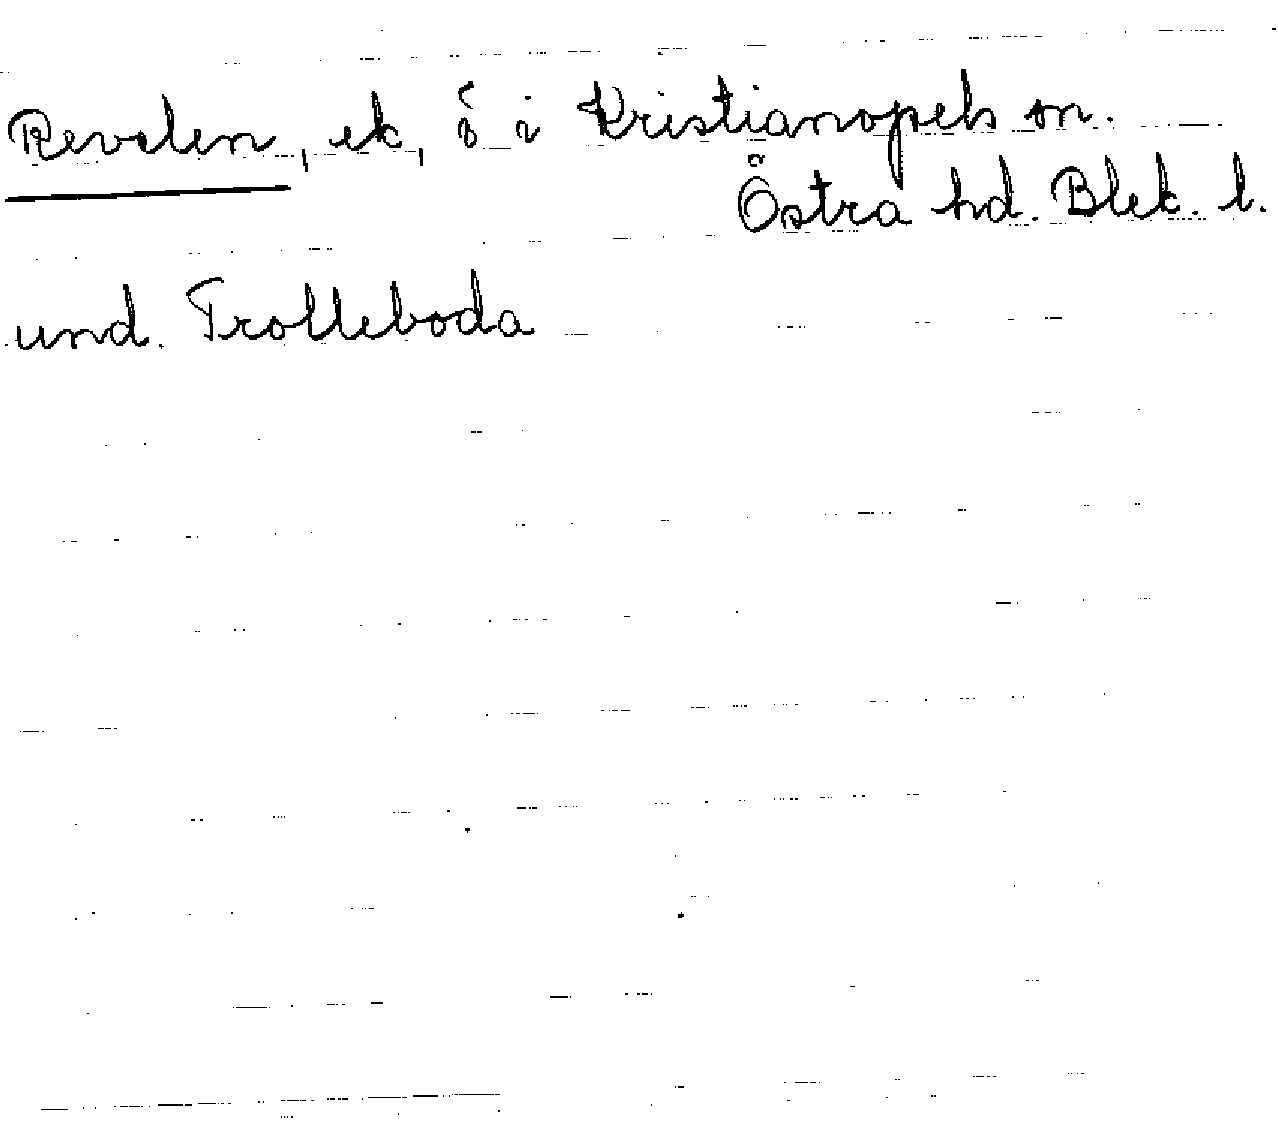 Revalen, ek, ö i Kristianopels sn.
Östra hd. Blek. l.
und. Trolleboda